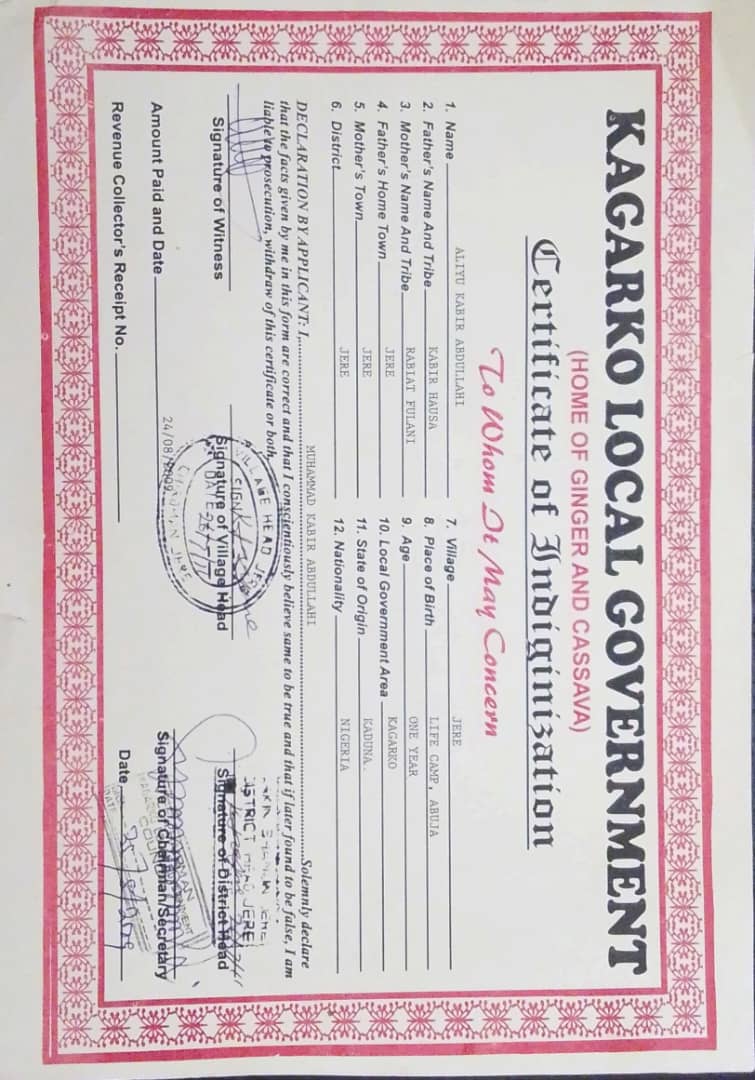 KAGARKO LOCAL GOVERNMENT
(HOME OF GINGER AND CASSAVA)
Certificate of Indiginization
To Whom It May Concern
1. Name ALIYU KABIR ABDULLAHI
2. Father's Name And Tribe KABIR HAUSA
3. Mother's Name And Tribe RABIAT FULANI
4. Father's Home Town JERE
5. Mother's Town JERE
6. District JERE
7. Village JERE
8. Place of Birth LIFE CAMP, ABUJA
9. Age ONE YEAR
10. Local Government Area KAGARKO
11. State of Origin KADUNA.
12. Nationality NIGERIA
DECLARATION BY APPLICANT: I, MUHAMMAD KABIR ABDULLAHI Solemnly declare
that the facts given by me in this form are correct and that I conscientiously believe same to be true and that if later found to be false, I am
liable to prosecution, withdraw of this certificate or both.
Signature of Witness
VILLAGE HEAD JERE
SIGN
DATE
Signature of Village Head
DISTRICT HEAD JERE
Signature of District Head
Amount Paid and Date 24/08/2009
Signature of Chairman/Secretary
Revenue Collector's Receipt No.
Date